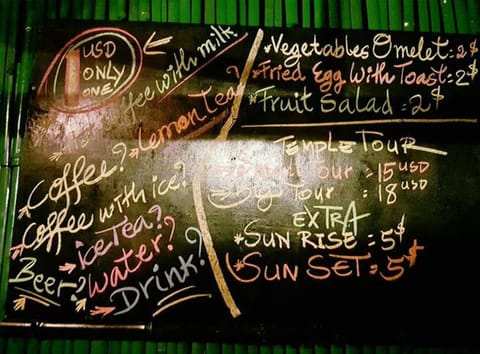 1 USD
ONLY
ONE!
Coffee with milk
Lemon Tea?
Coffee?
Coffee with ice?
Ice Tea?
Water?
Beer?
Drink?
*Vegetables Omelet = 2$
*Fried Egg With Toast = 2$
*Fruit Salad = 2$
TEMPLE TOUR
Tour = 15 USD
Big Tour = 18 USD
EXTRA
*SUN RISE = 5$
*SUN SET = 5$